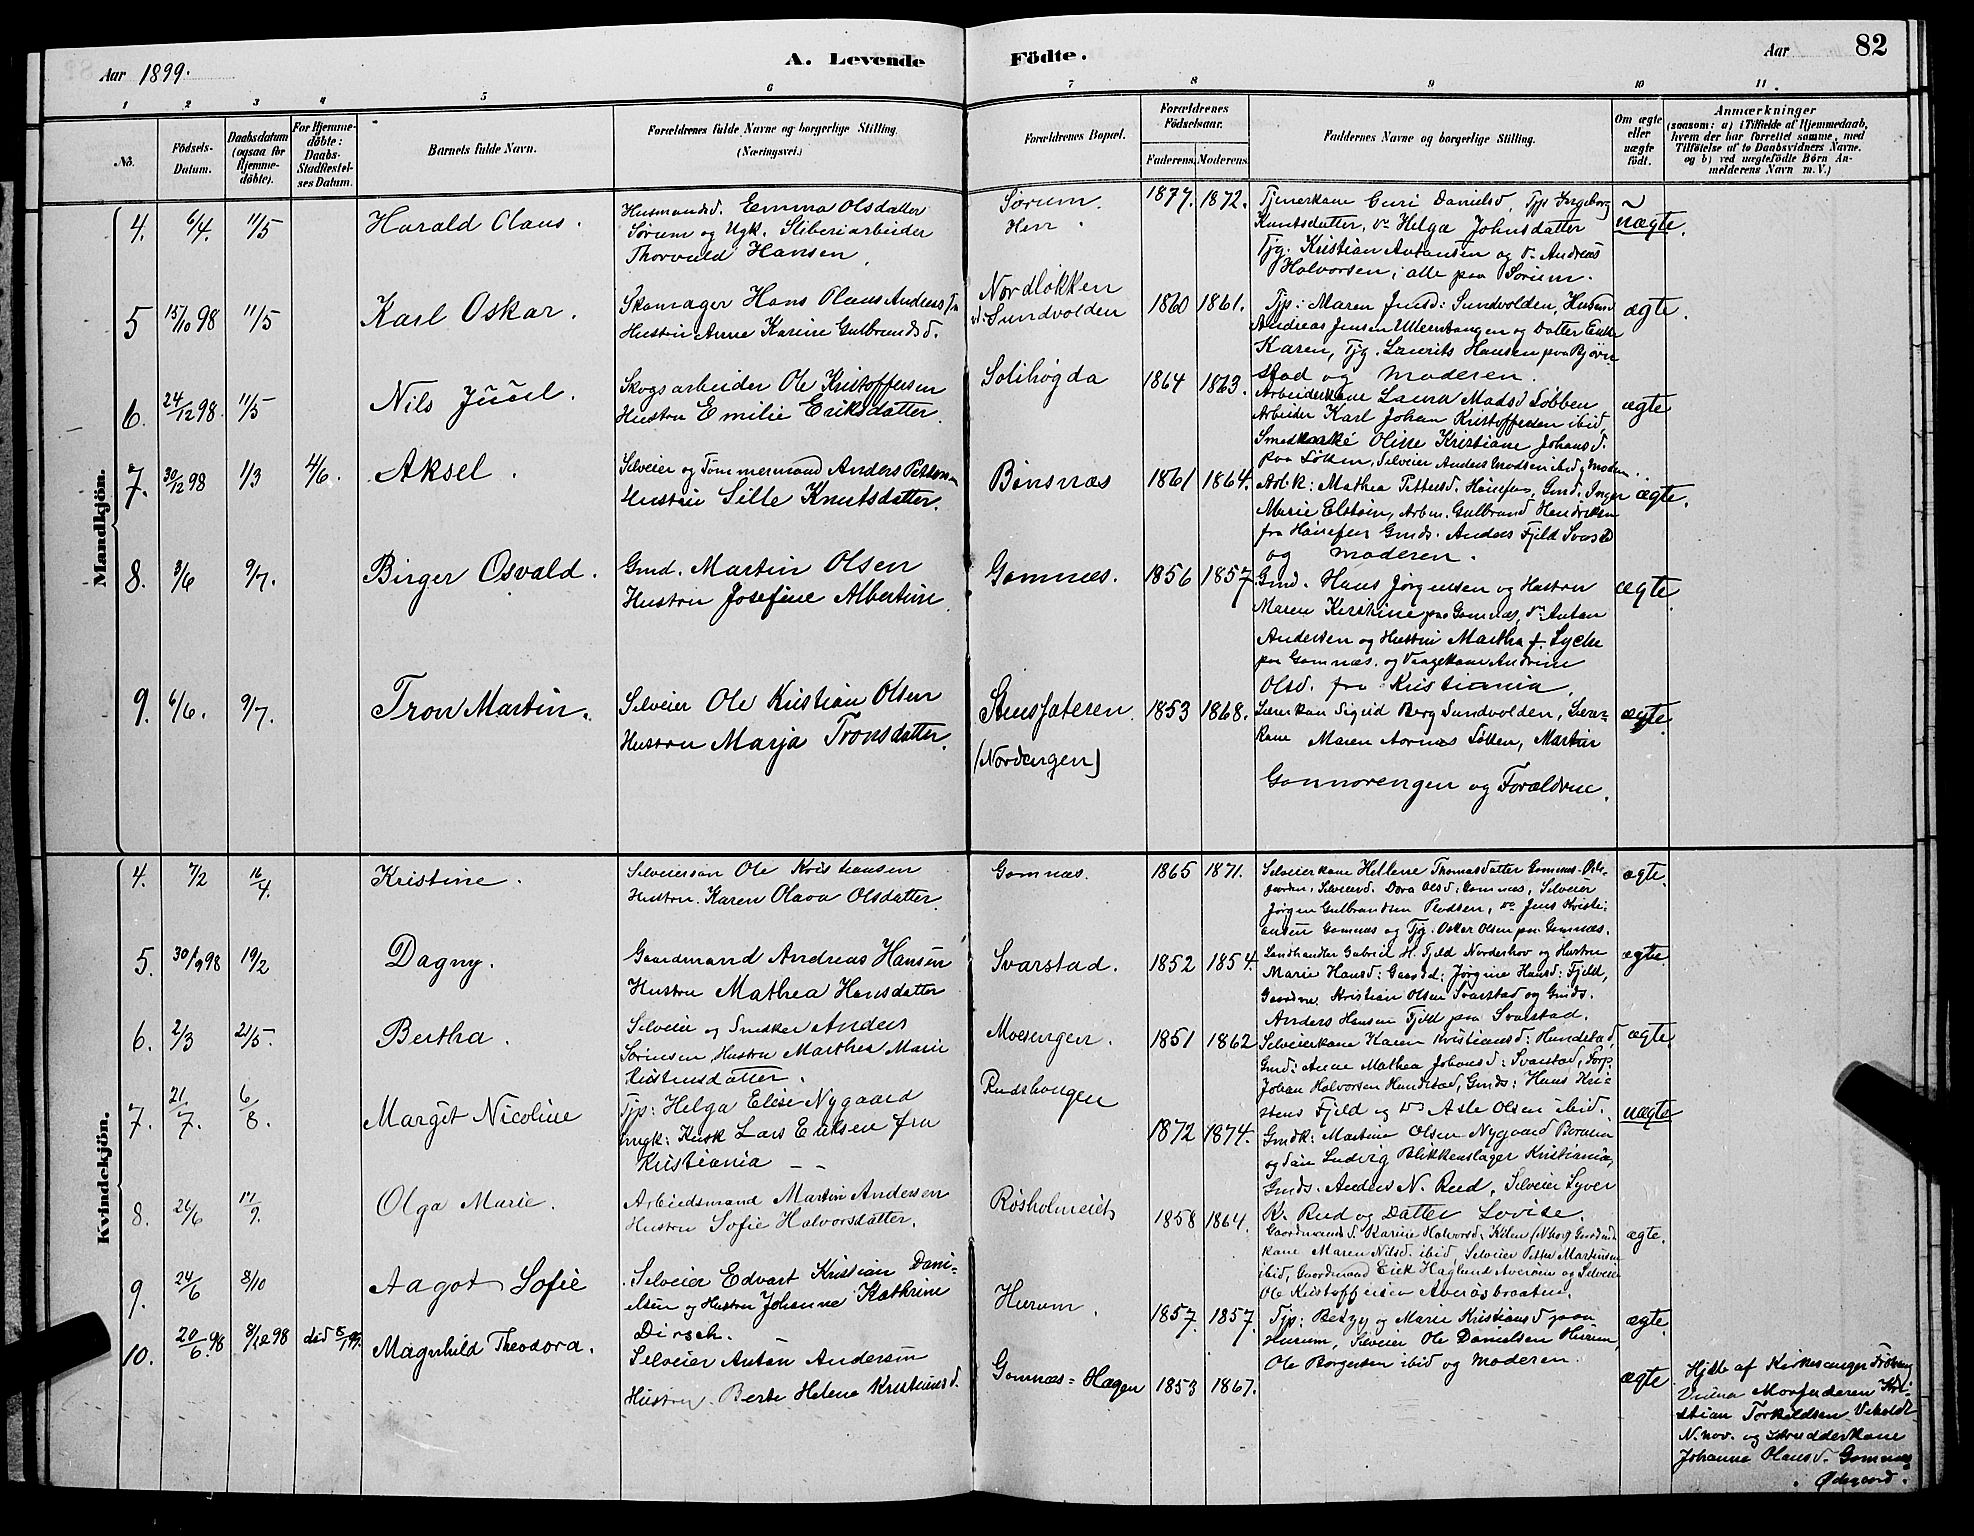 Aar 1899.
A. Levende Födte.
Aar
82
1 2 3 4 5 6 7 8 9 10 11
No.
Födsels-Datum.
Daabsdatum (ogsaa for Hjemme-döbte).
For Hjemme-döbte: Daabs-Stadfæstel-ses Datum.
Barnets fulde Navn.
Forældrenes fulde Navne og borgerlige Stilling. (Næringsvei.)
Forældrenes Bopæl.
Forældrenes Födselsaar.
Faderens. Moderens.
Faddernes Navne og borgerlige Stilling.
Om ægte eller uægte födt.
Anmærkninger
(saasom: a) i Tilfælde af Hjemmedaab, hvem der har forrettet samme, med Tilföielse af to Daabsvidners Navne. og b) ved uægtefödte Börn Anmelderens Navn m. V.)
Mandkjön.
4. 6/4. 11/5 Harald Olaus.
Husmandsd. Emma Olsdatter
Sørum og Ugk. Sliberiarbeider
Thorvald Hansen,
Sørum.
Hen.
1877. 1872.
Tjenerkane Guri Danielsd, Tjp Ingeborg
Knutsdatter, do Helga Johnsdatter
Tjg. Kristian Antonsen og do Andreas
Halvorsen, alle paa Sørum.
uægte.
5 15/10 98 11/5 Karl Oskar.
Skomager Hans Olaus Andersen
Hustru Anne Karine Gulbrandsd.
Nordløkken
Sundvolden
1860 1861.
Tjp: Maren Jensd: Sundvolden,
Andreas Jensen og Datter
Karen, Tjg. Laurits Hansen paa Bjørn-
stad og Moderen.
ægte.
6. 24/12 98. 11/5 Nils Juul.
Skogsarbeider Ole Kristoffersen
Hustru Emilie Eriksdatter.
Solihøgda
1864 1863.
Arbeiderkane Laura Madsd Løbben
Arbeider Karl Johan Kristoffersen ibid,
Oline Kristiane Johansd.
paa Løkken, Selveier Anders Madsen ibid og Modern.
ægte
7. 30/12 98 1/3 4/6. Aksel.
Selveier og Tømmermand Anders Pettersen
Hustru Sille Knutsdatter.
Bønsnæs
1861 1864.
Arb.k: Mathea Pettersd. Hønefos, Gmd. Inger
Marie Elstøin, Arbm. Gulbrand Hendriksen
fra Hønefos Gmds. Anders Fjeld
og Moderen.
ægte.
8. 3/6 9/7. Birger Osvald.
Gmd. Martin Olsen
Hustru Josefine Albertine
Gomnæs.
1856 1857
Gmd. Hans Jørgensen og Hustru
Maren Kirstine paa Gomnæs, do Anton
Andersen og Hustru Martha f. Lyche
paa Gomnæs. og Andrine
Olsd. fra Kristiania.
ægte
9. 6/6. 9/7. Tron Martin.
Selveier Ole Kristian Olsen
Hustru Marja Tronsdatter.
Stensfateren.
(Nordengen)
1853 1868.
Sigrid Berg Sundvolden,
Kane Maren Løkken, Martin
Gonnorengen og Forældrene.
ægte
Kvindekjön.
4. 7/2 16/4. Kristine.
Selveiersøn Ole Kristiansen
Hustru. Karen Olava Olsdatter
Gomnæs.
1865 1871.
Selveierkane Hellene Thomasdatter Gomnæs-
Selveierd. Dora Olsd: Gomnæs, Selveier
Jørgen Gulbrandsen, do Jens Kristi-
ansen Gomnæs og Tjg. Oskar Olsen paa Gomnæs.
ægte.
5. 30/ 98 19/2 Dagny.
Gaardmand Andreas Hansen
Hustru Mathea Hansdatter
Svarstad.
1852 1854.
Landhandler Gabriel H. Fjeld Norderhov og Hustru
Marie Hansd: Jørgine Hansd: Fjeld,
Gaardm. Kristian Olsen Svarstad og Gmds.
Anders Hansen Fjeld paa Svarstad.
ægte
6. 2/3 21/5. Bertha.
Selveier og Snedker Anders
Sørensen Hustru Marthea Marie
Kristensdatter.
Moesengen.
1851 1862
Selveierkane Karen Kristiansd: Hundstad,
Gmd: Anne Mathea Johansd: Svarstad,
Johan Halvorsen Hundstad, Gmds: Hans Kri-
stens Fjeld og do Asle Olsen ibid.
ægte,
7. 21/7. 6/8. Margit Nicoline
Tjp: Helga Elise Nygaard
ungk: Kusk Lars Eriksen fra
Kristiania — —
Rudshougen
1872 1874.
Gmdk: Martine Olsen Nygaard
og Søn Ludvig Blikkenslager Kristiania,
Gmds. Anders N. Rud, Selveier Syver
K. Rud og Datter Lovise.
uægte
8. 26/6 17/9. Olga Marie.
Arbeidsmand Martin Andersen
Hustru Sofie Halvorsdatter.
Røsholmeiet
1858 1864.
Gaardmandsd. Karine Halvorsd:
kane Maren Nilsd. ibid, Selveier Petter Martinsen
ibid, Gaardmand Erik Haglund Averøen og Selveier
Ole Kristoffersen Averøsbraaten.
ægte.
9. 24/6 8/10 Aagot Sofie
Selveier Edvart Kristian Dani-
elsen og Hustru Johanne Kathrine
Dirsch.
Hurum.
1857. 1857.
Tjp: Betzy og Marie Kristiansd paa
Hurum, Selveier Ole Danielsen Hurum,
Ole Borgersen ibid og Moderen.
ægte.
10. 20/6. 98 8/12 98 Magnhild Theodora.
Selveier Anton Andersen
Hustru. Berte Helene Kristiansd.
Gomnæs=Hagen
1853 1867.
ægte
Hjdb af Kirkesanger
Morfaderen Kri-
stian Torkildsen
N. nov. og Skrædderkane
Johanne Olausd. Gomnæs
Ødegaard.